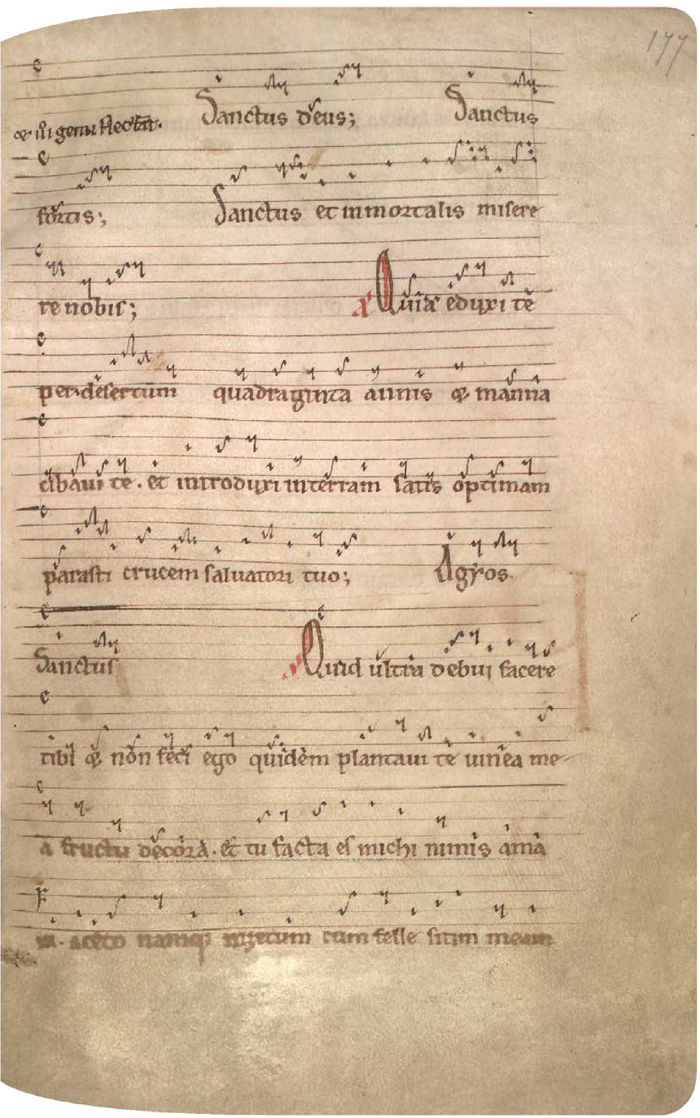 177
Sanctus deus; Sanctus
fortis; Sanctus et inmortalis misere
re nobis; Quia eduxi te
per desertum quadraginta annis & manna
cibaui te. et introduxi interram satis optimam
parasti crucem saluatori tuo; Agyos
Sanctus Quid ultra debui facere
tibi & non feci ego quidem plantaui te uinea me-
a fructu decora. et tu facta es michi nimis ama
ra. aceto namq; cum felle sitim meam